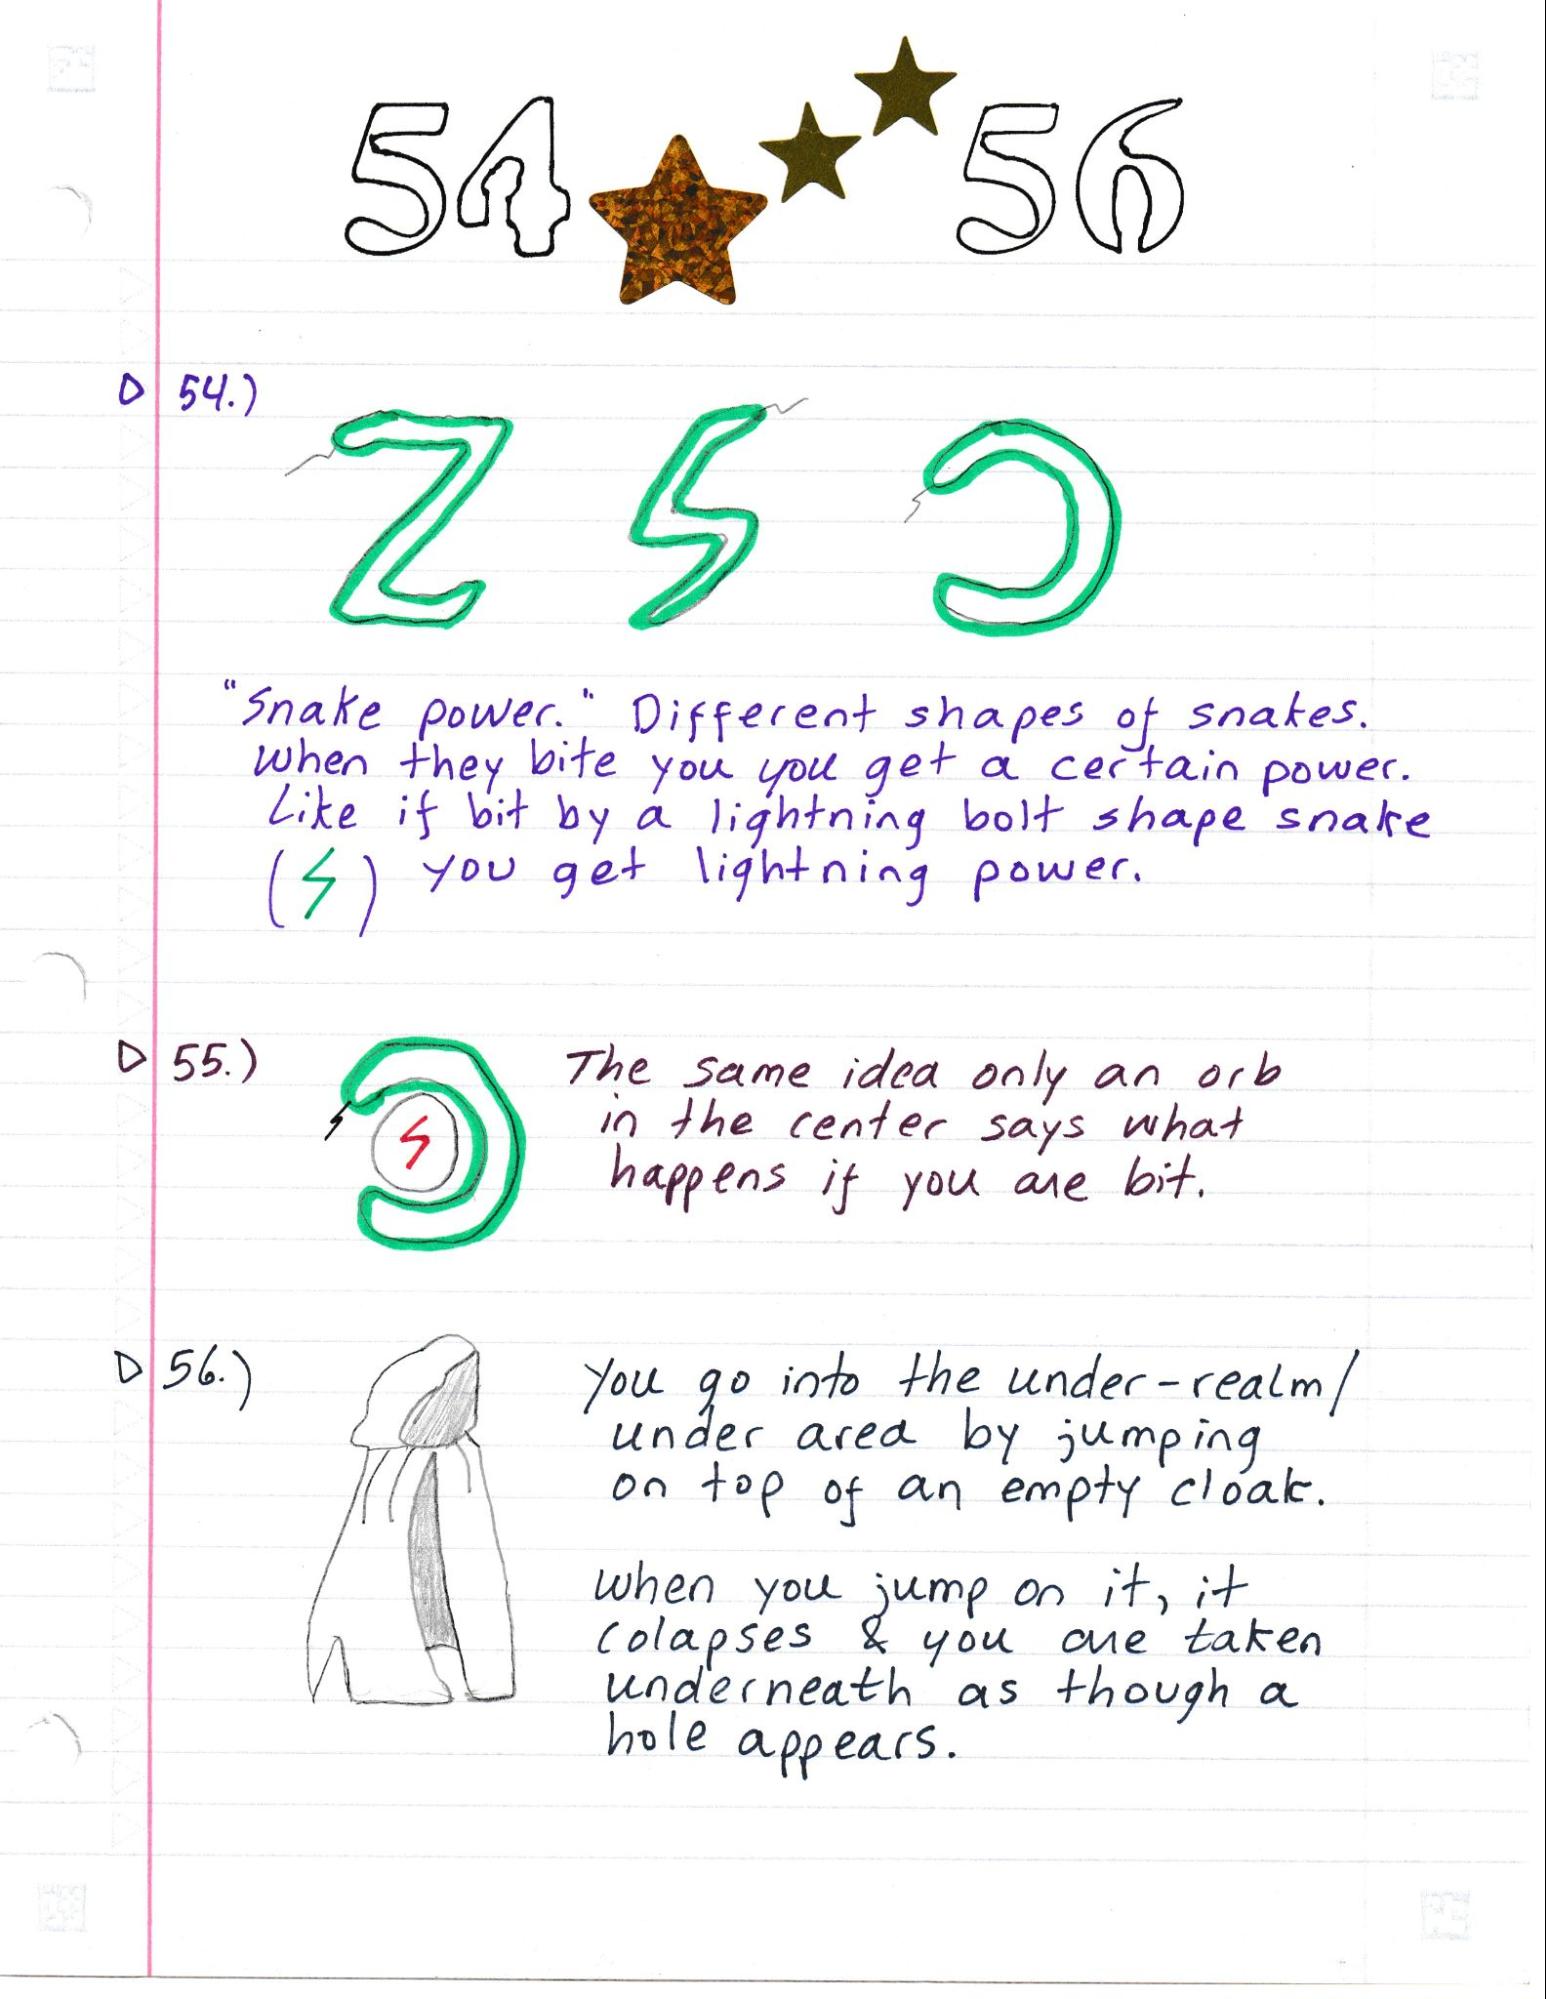 54 56
54.)
"Snake power." Different shapes of snakes.
When they bite you you get a certain power.
Like if bit by a lightning bolt shape snake
( ) you get lightning power.
55.)
The same idea only an orb
in the center says what
happens if you are bit.
56.)
You go into the under-realm/
under area by jumping
on top of an empty cloak.
When you jump on it, it
colapses & you are taken
underneath as though a
hole appears.